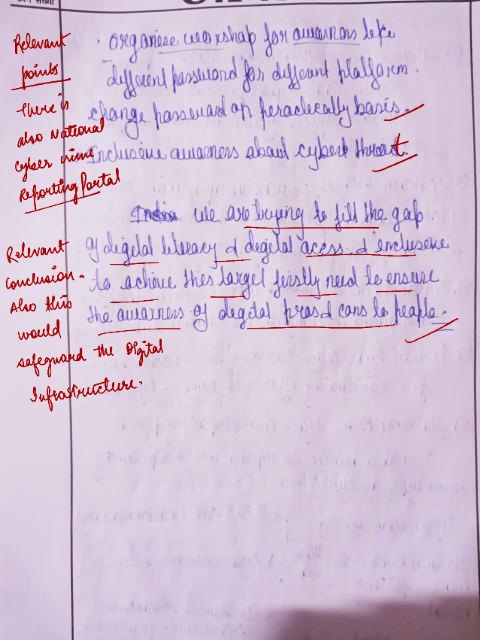 Relevant
points
There is
also National
cyber crime
Reporting Portal
· organiese workshop for awarnas like
different password for different platform.
change password on peraclecally basis.
Inclusive awarness about cyber threat.
India we are trying to fill the gap
of digital literacy & digital access & inclusive
to achive this target firstly need to ensure
the awarness of degital pros & cons to people.
Relevant
conclusion.
Also this
would
safeguard the Digital
Infrastructure.